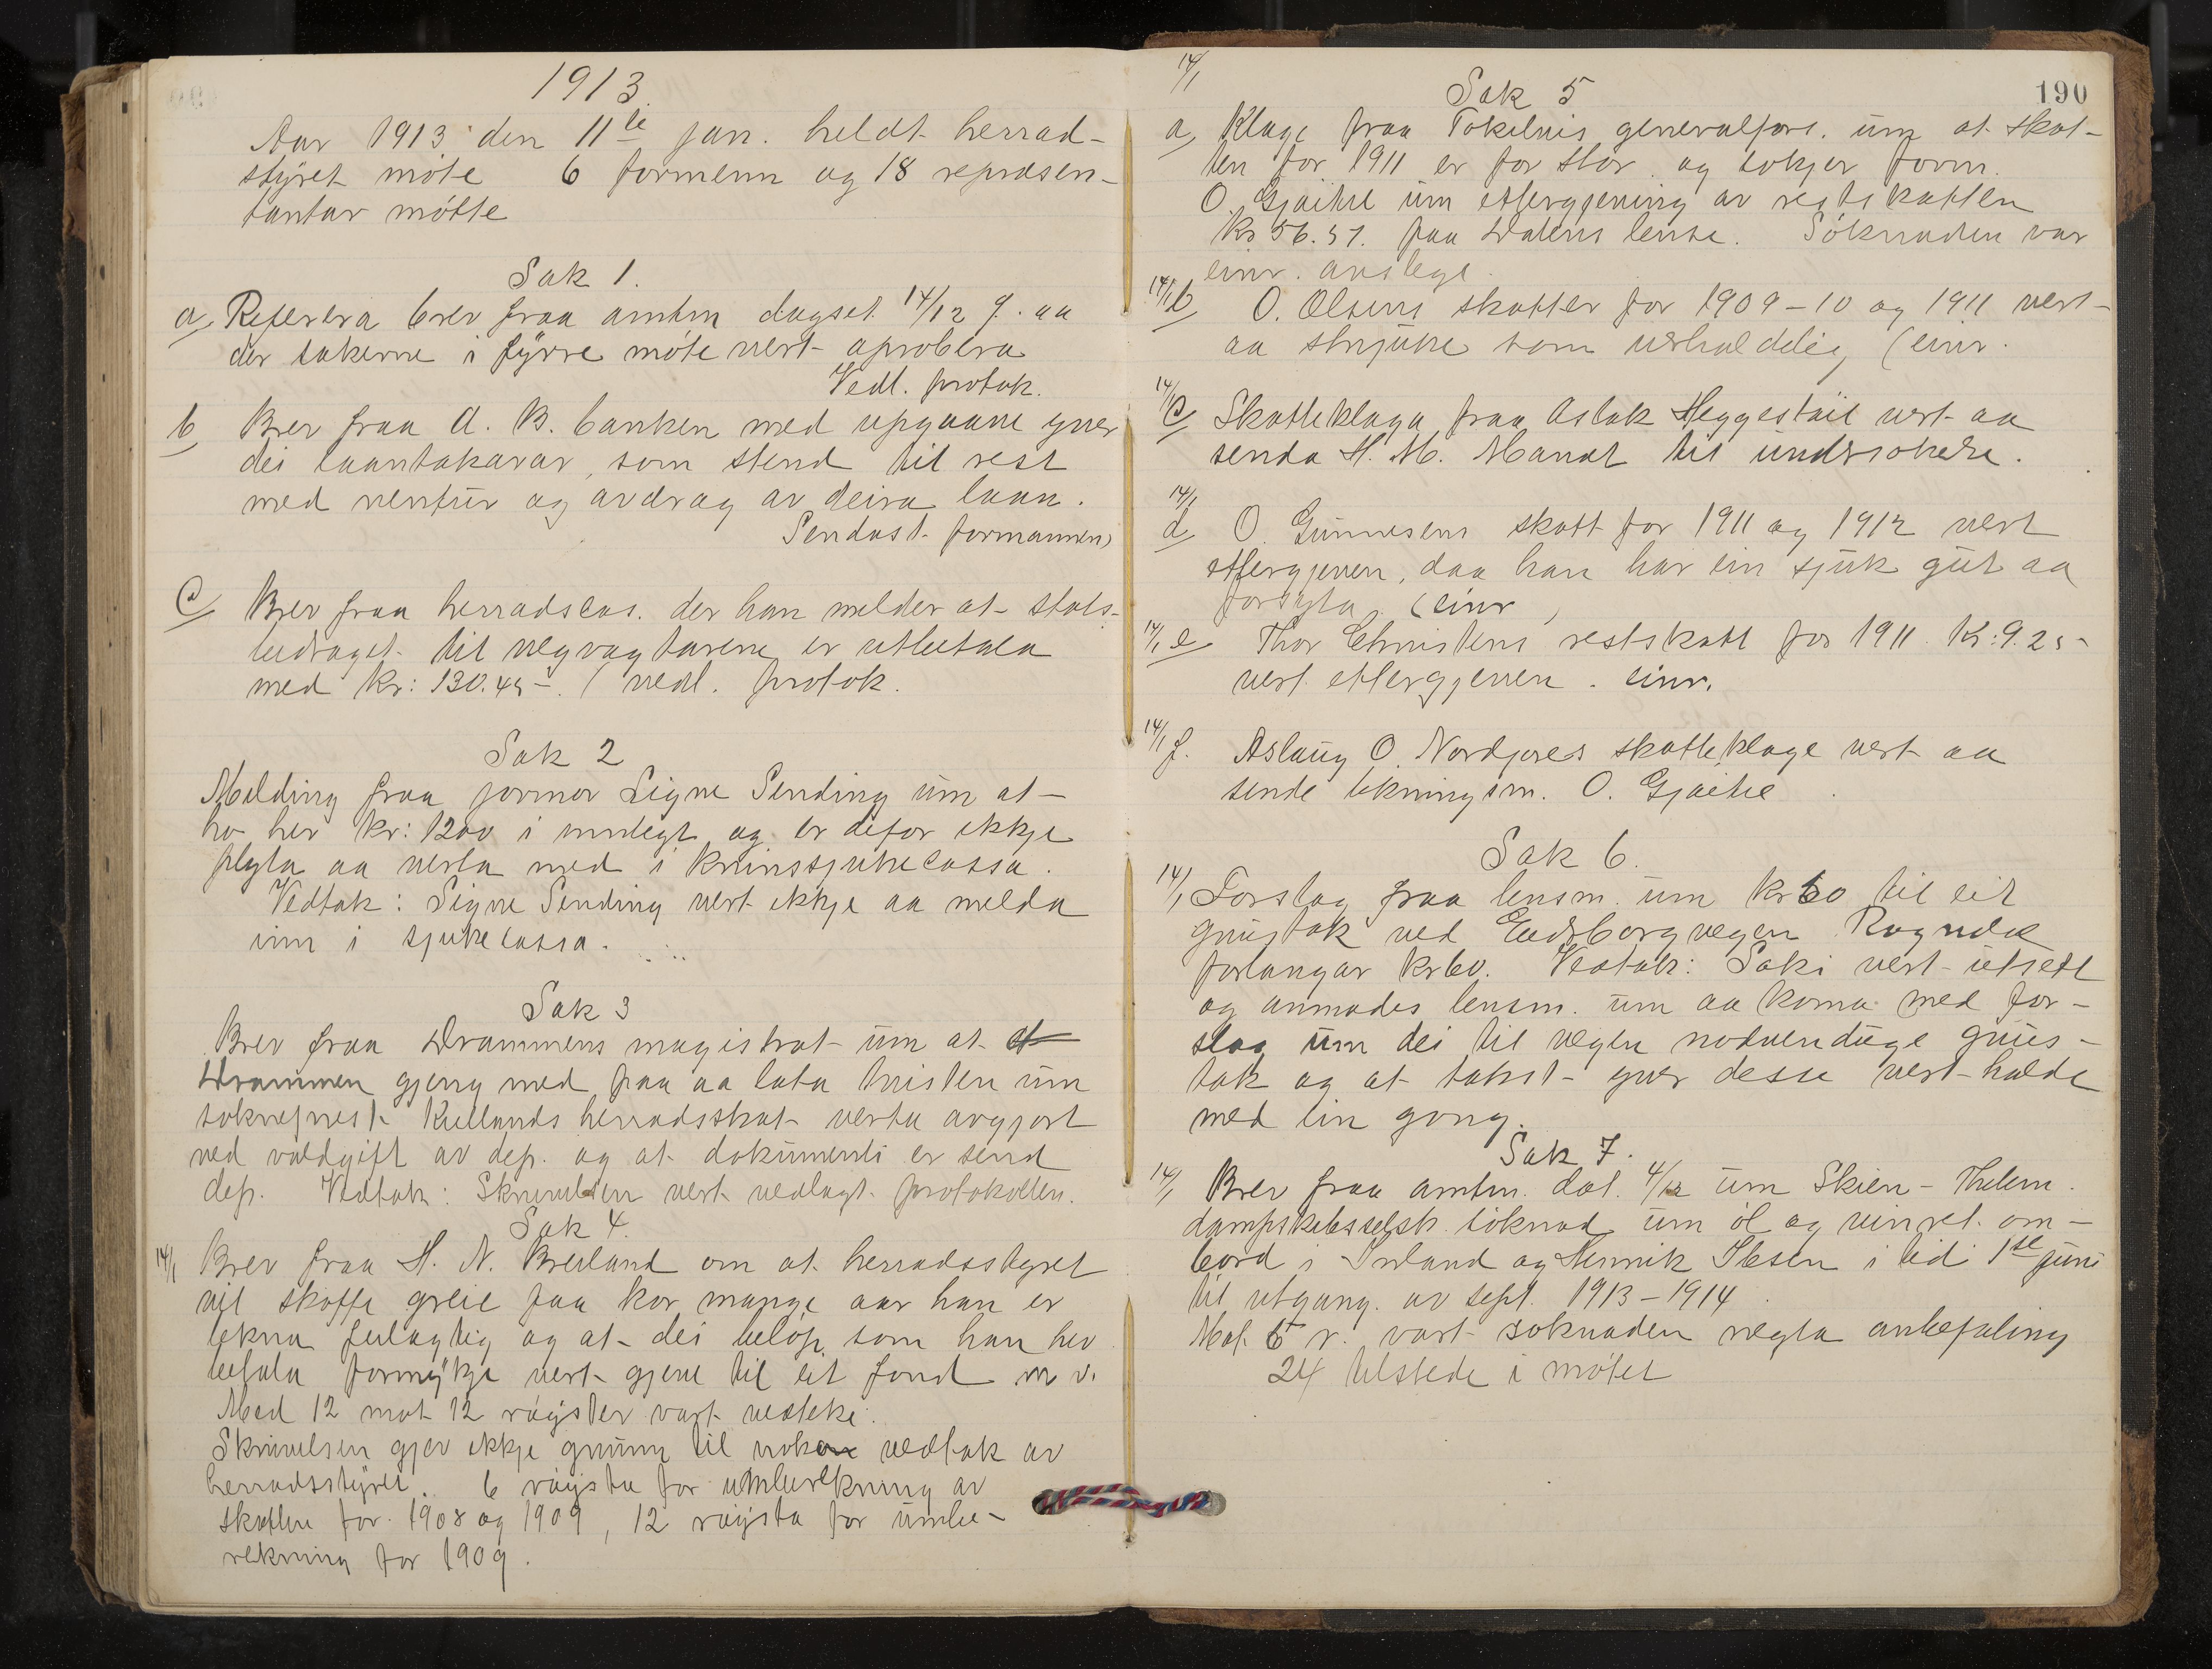 1913.
Aar 1913 den 11te jan. heldt herrad-
styret møte 6 formenn og 18 repræsen-
tantar møtte
Sak 1.
a, Referera brev fraa amtm dagset 14/12 f. aa
der sakerne i fyrre møte vert aprobera
Vedl. protok.
b Brev fraa A. B. banken med upgaave yver
dei laantakarar, som stend til rest
med rentur og avdrag av deira laan.
Sendast formannen
C, Brev fraa herradscas. der han melder at stats-
bidraget til vegvagtarene er utbetala
med kr: 130.45-. (vedl. protok.
Sak 2
Melding fraa jormor Signe Sending um at
ho hev kr: 1200 i inntegt og er difor ikkje
plegta aa verta med i krinssjukecassa.
Vedtak: Signe Sending vert ikkje aa melda
inn i sjukecassa.
Sak 3
Brev fraa Drammens magistrat um at
Drammen gjeng med paa aa lata tvisten um
soknepræst Kullands herradsskat verta avgjort
ved voldgift av dep. og at dokumenti er send
dep. Vedtak: Skrivelsen vert vedlagt protokollen.
Sak 4.
14/1 Brev fraa H. N. Breiland om at herradsstyret
vil skaffe greie paa kor mange aar han er
likna feilagtig og at dei beløp som han hev
betala formykje vert gjeve til eit fond m v.
Med 12 mot 12 røyster vart vedteke:
Skrivelsen gjev ikkje grunn til noko vedtak av
herradsstyret. 6 røysta for umberekning av
skatten for 1908 og 1909, 12 røysta for umbe-
rekning for 1909.
190
14/1
Sak 5
a, Klage fraa Tokelvis generalfors. um at skat-
ten for 1911 er for stor og søkjer form.
O. Gjaitre um ettergjeving av restskatten
Kr 56.51. paa Dalens lense. Søknaden var
einr. avslegt.
14/1 b O. Olsens skatter for 1909-10 og 1911 vert
aa strjuke som uerholdelig (einr.
14/1 C Skatteklaga fraa Aslak Heggestøil vert aa
senda H. M. Mandt til undersøkelse.
14/1
d, O. Gunnesens skatt for 1911 og 1912 vert
ettergjeven, daa han har ein sjuk gut aa
forsyta, (einr,
14/1 e Thor Christens restskatt for 1911 Kr: 9.25-
vert ettergjeven. einr.
14/1 f. Aslaug O. Nordjores skatteklage vert aa
sende likningsm. O. Gjaitre.
Sak 6.
14/1 Forslag fraa lensm. um kr 60 til eit
grustak ved Eidsborgvegen. Ragnde
forlangar kr 60. Vedtak: Saki vert utsett
og anmodes lensm. um aa koma med for-
slag um dei til vegen nodvendige grus-
tak og at takst yver desse vert halde
med ein gong.
Sak 7.
14/1 Brev fraa amtm. dat. 4/12 um Skien-Thelem.
dampskibsselsk. søknad um øl og vinret om-
bord i Inland og Henrik Ibsen i tid 1ste juni
til utgang. av sept. 1913-1914.
Mot 6 r. vart søknaden negta anbefaling
24 tilstede i møtet